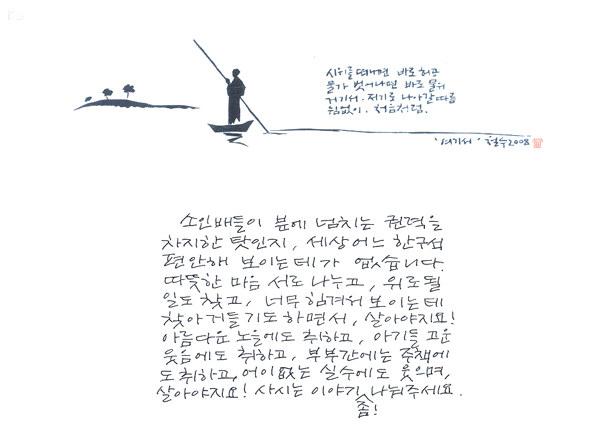 시위를 떠나면 바로 허공
물가 벗어나면 바로 물위
거기서. 저기로 나아갈 따름
쉼없이. 처음처럼.
'여기서' 철수2008
소인배들이 분에 넘치는 권력을
차지한 탓인지, 세상 어느 한구석
편안해 보이는 데가 없습니다.
따뜻한 마음 서로 나누고, 위로될
일도 찾고, 너무 힘겨워 보이는 데
찾아 거들기도 하면서, 살아야지요!
아름다운 노을에도 취하고, 아기들 고운
웃음에도 취하고, 부부간에는 주책에
도 취하고, 어이없는 실수에도 웃으며,
살아야지요! 사시는 이야기 나눠주세요.
좀!